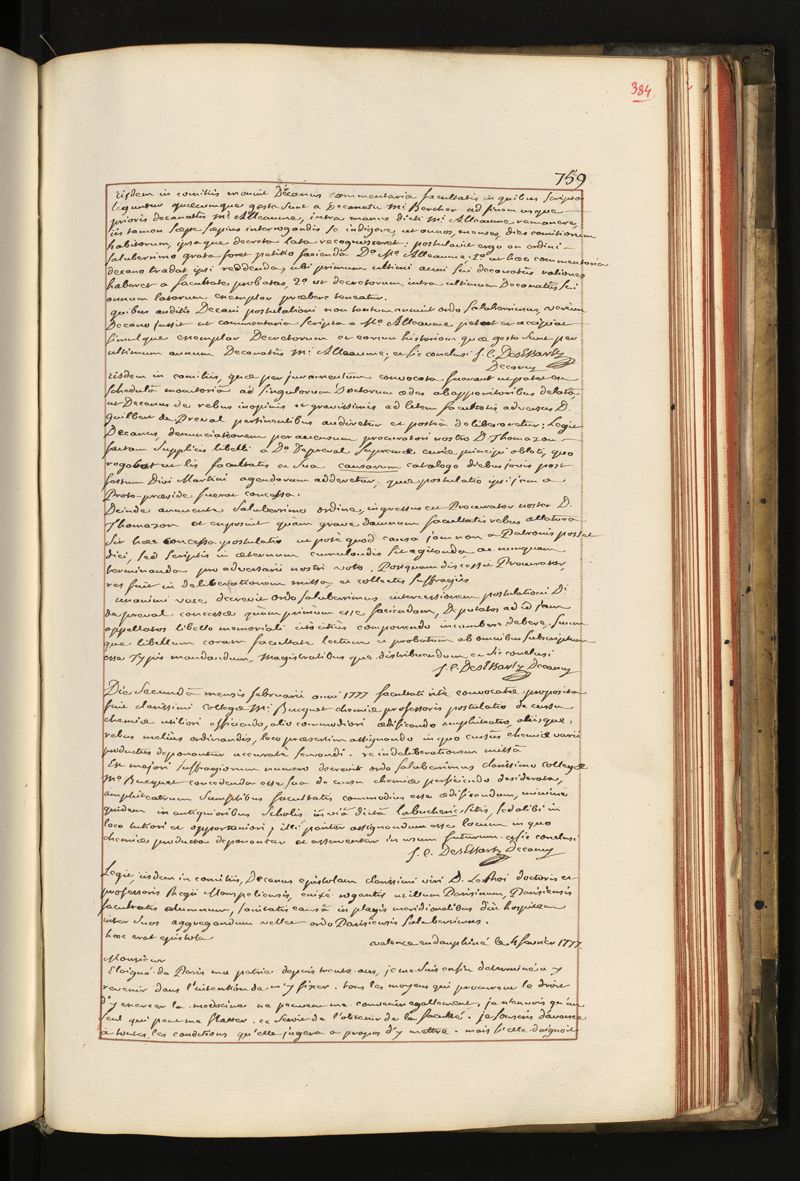 384.
759
iisdem in comitiis monuit Decanus commentaria facultatis in quibus scripto
leguntur quæcumque gesta sunt a Decanatu Mi. Bercher ad finem usque
prioris decanatus Mi. Alleaume, intra manus dicti Mi. Alleaume remanere,
iis tamen sæpe sæpius interrogandis se indigere, ut annos, menses, dies comitiorum
habitorum, ipsaque decreta lata recognosceret; postulavit ergo an ordini
saluberrimo grata foret petitio facienda Do. Mo. Alleaume. 1o. ut hæc commentaria
decano tradat ipsi reddenda, ubi primum ultimi anni sui decanatus rationes
habaret a facultate probatas, 2o. ut decretorum, intra ultimum Decanatus sui
annum latorum exemplar præbere teneatur.
quibus auditis Decani postulationi non tantum annuit ordo saluberrimus, verum
Decano jussit ut commentaria scripta a Mo. Alleaume petat et accipiat
simulque exemplar Decretorum et eorum historiam quæ gesta sunt per
ultimum annum Decanatus Mi. Alleaume; et sic conclusi J. C. DesEssartz
Decanus
iisdem in comitiis, quæ per juramentum convocata fuerant ut patet ex
schedula monitoria ad singulorum Doctorum ædes ab apparitoribus delata
ut Decanus de rebus inopinis et gravissimis ad litem facultatis adversus D.
Guilbert de Preval pertinentibus audiretur et postea deliberaretur; Legit
Decanus denunciationem per procuratori nostro D. Thomazon
factam supplicis libelli a Do. Depreval supremæ curiæ principi oblati, quo
rogabat ut lis facultatis ac sua causarum catalogo diebus jovis post
festum Divi Martini agendarum adderetur, quæ postulatio ipsi jam a
Proto-præside fuerat concessa.
Deinde annuente saluberrimo ordine, ingressus est Procurator noster D.
Thomazon et exposuit quam grave damnum facultatis rebus allatura
sit hæc concessa postulatio ut pote quod causa jam non a Patronis possit
dici, sed scriptis in æternum cumulandis sit agitanda, ac nunquam
terminanda pro adversarii nostri voto. Postquam discessit Procurator,
res fuit in deliberationem missa, et collectis suffragiis
unanimi voce decrevit ordo saluberrimus intercessionem postulationi Di.
de preval concessæ quam primum esse faciendam, Deputatos ad id jam
appellatos libello memoriali citius componendo incumbere debere. Suum
que libellum coram facultate lectum et probatum ab omnibus subscriptum
esse typis mandandum, Magistratibus que distribuendum et sic conclusi
J. C. DesEssartz Decanus
Die Secunda mensis februarii anni 1777 facultati rite convocatæ proposita
fuit clarissimi collegæ Mi. Bucquet chemiæ professoris postulatio de cursu
chemiæ utiliori efficiendo, alio commodiori ædificando amphiteatro, aliisque
rebus melius ordinandis, loco præsertim assignando in quo cursus chemiæ varii
productus deponantur accurate servandi. re in deliberationem missa
Ex majori suffragiorum numero decrevit ordo saluberrimus clarissimo collegæ
Mo. Bucquet concedenda esse sua de cursu chemiæ perficiendo desiderata,
amphiteatrum sumptibus facultatis commodius esse ædificandum, minime
quidem in antiquioribus scholis in via dicta la bucherie sitis, sed alibi in
loco tutiori et opportuniori; illi pariter assignandum esse locum in quo
chemiæ producta deponantur et asserventur in usum futurum. et sic conclusi
J. C. DesEssartz Decanus
Legit iisdem in comitiis, Decanus epistolam clarissimi viri D. doctoris et
professoris Regii Monspeliensis, enixe rogantis ut illum Parisinum, Parisiensis
facultatis alumnum, sanitatis causa in plagis meridionalibus diu hospitem
inter suos aggregandum vellet ordo Parisiensis saluberrimus.
hæc erat epistola
valence en dauphiné le 4 fevrier 1777.
Monsieur
Eloigné de Paris ma patrie depuis trente ans, je me suis enfin determiné a y
revenir dans l'intention de m'y fixer. tous les moyens qui procurent le droit
d'y exercer la medecine ne peuvent me convenir egallement, je n'en vois qu'un
seul qui peut me flatter. ce seroit de l'obtenir de la faculté. je souscris d'avance
a toutes les conditions qu'elle jugera a propos d'y mettre. mais si elle daignoit